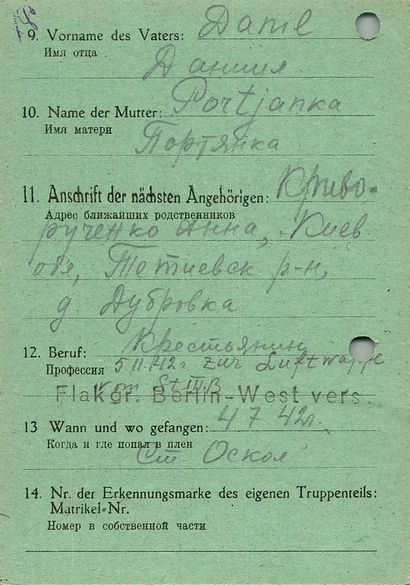 9. Vorname des Vaters: Danil
Имя отца
Данил
10. Name der Mutter: Portjanka
Имя матери
Портянка
11. Anschrift der nächsten Angehörigen: Криво-
Адрес ближайших родственников
рученко Анна, Киев
обл, Тетиевск р-н,
д. Дубровка
12. Beruf: Крестьянин
Профессия 5.11.42. zur Luftwaffe
vom St III B
Flakgr. Berlin-West vers.
13 Wann und wo gefangen: 4 7 42г.
Когда и где попал в плен
Ст. Оскол
14. Nr. der Erkennungsmarke des eigenen Truppenteils:
Matrikel=Nr.
Номер в собственной части